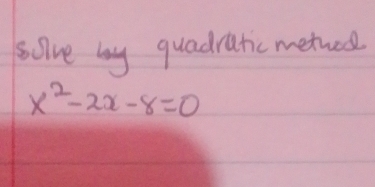 solve by quadratic method
x²-2x-8=0